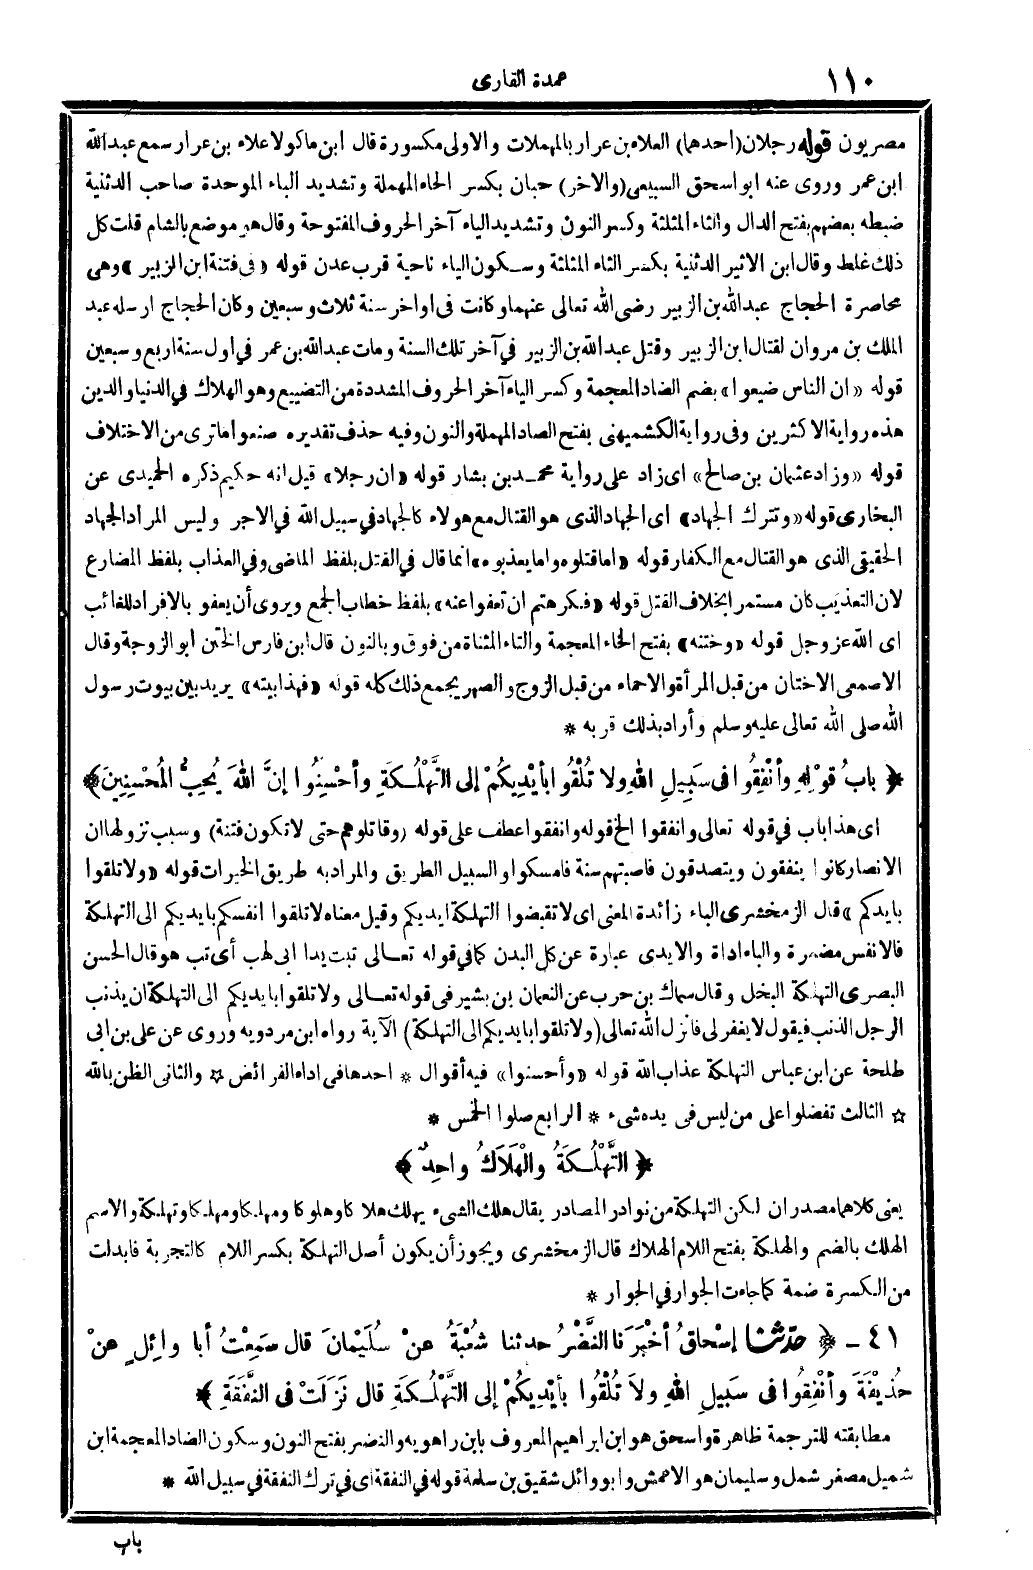 ١١٠
عمدة القارى
مصريون قوله رجلان (احدهما) العلاء بن عرار بالمهملات والاولى مكسورة قال ابن ماكولا علاء بن عرار سمع عبدالله
ابن عمر وروى عنه ابو اسحق السبيعى (والاخر) حبان بكسر الحاء المهملة وتشديد الباء الموحدة صاحب الدثنية
ضبطه بعضهم بفتح الدال والثاء المثلثة وكسر النون وتشديد الياء آخر الحروف المفتوحة وقال هو موضع بالشام قلت كل
ذلك غلط وقال ابن الاثير الدثنية بكسر الثاء المثلثة وسكون الياء ناحية قرب عدن قوله «فى فتنة ابن الزبير» وهى
محاصرة الحجاج عبدالله بن الزبير رضى الله تعالى عنهما وكانت فى اواخر سنة ثلاث وسبعين وكان الحجاج ارسله عبد
الملك بن مروان لقتال ابن الزبير وقتل عبدالله بن الزبير في آخر تلك السنة ومات عبدالله بن عمر في اول سنة اربع وسبعين
قوله «ان الناس ضيعوا» بضم الضاد المعجمة وكسر الياء آخر الحروف المشددة من التضييع وهو الهلاك في الدنيا والدين
هذه رواية الاكثرين وفى رواية الكشميهنى بفتح الصاد المهملة والنون وفيه حذف تقديره صنعوا ماترى من الاختلاف
قوله «وزاد عثمان بن صالح» اى زاد على رواية محمد بن بشار قوله «ان رجلا» قيل انه حكيم ذكره الحميدى عن
البخارى قوله «وتترك الجهاد» اى الجهاد الذى هو القتال مع هولاء كالجهاد في سبيل الله في الاجر وليس المراد الجهاد
الحقيقى الذى هو القتال مع الكفار قوله «اما قتلوه واما يعذبوه» انما قال في القتل بلفظ الماضى وفي العذاب بلفظ المضارع
لان التعذيب كان مستمرا بخلاف القتل قوله «فكرهتم ان تعفوا عنه» بلفظ خطاب الجمع ويروى أن يعفو بالافراد للغائب
اى الله عز وجل قوله «وختنه» بفتح الخاء المعجمة والتاء المثناة من فوق وبالنون قال ابن فارس الختن ابو الزوجة وقال
الاصمعى الاختان من قبل المرأة والاحماء من قبل الزوج والصهر يجمع ذلك كله قوله «فهذا بيته» يريد بين بيوت رسول
الله صلى الله تعالى عليه وسلم وأراد بذلك قربه *
﴿ بابُ قَوْلِهِ وأنْفِقُوا فى سَبِيلِ اللهِ ولا تُلْقُوا بأيْدِيكُمْ إلى التَّهْلُكَةِ وأحْسِنُوا إنَّ اللهَ يُحِبُّ المُحْسِنِينَ ﴾
اى هذا باب في قوله تعالى وانفقوا الخ قوله وانفقوا عطف على قوله (وقاتلوهم حتى لا تكون فتنة) وسبب نزولها ان
الانصار كانوا ينفقون ويتصدقون فاصبتهم سنة فامسكوا والسبيل الطريق والمراد به طريق الخيرات قوله «ولا تلقوا
بايدكم» قال الزمخشرى الباء زائدة المعنى اى لا تقبضوا التهلكة ايديكم وقيل معناه لا تلقوا انفسكم بايديكم الى التهلكة
فالانفس مضمرة والباء اداة والايدى عبارة عن كل البدن كما في قوله تعالى تبت يدا ابى لهب أى تب هو قال الحسن
البصرى التهلكة البخل وقال سماك بن حرب عن النعمان بن بشير فى قوله تعالى ولا تلقوا بايديكم الى التهلكة ان يذنب
الرجل الذنب فيقول لا يغفر لى فانزل الله تعالى (ولا تلقوا بايديكم الى التهلكة) الآية رواه ابن مردويه وروى عن على بن ابى
طلحة عن ابن عباس التهلكة عذاب الله قوله «وأحسنوا» فيه أقوال * احدها فى اداء الفرائض ☆ والثانى الظن بالله
☆ الثالث تفضلوا على من ليس فى يده شىء * الرابع صلوا الخمس *
﴿ التَّهْلُكَةُ والْهَلَاكُ واحِدٌ ﴾
يعنى كلاهما مصدران لكن التهلكة من نوادر المصادر يقال هلك الشىء يهلك هلاكا وهلوكا ومهلكا ومهلكا وتهلكة والاسم
الهلك بالضم والهلكة بفتح اللام الهلاك قال الزمخشرى ويجوز أن يكون أصل التهلكة بكسر اللام كالتجربة فابدلت
من الكسرة ضمة كما جاءت الجوار في الجوار *
٤١ - ﴿ حدّثنا إسْحاقُ أخْبَرَنا النَّضْرُ حدثنا شُعْبَةُ عنْ سُلَيْمانَ قال سَمِعْتُ أبا وائِلٍ عنْ
حُذَيْفَةَ وأنْفِقُوا فى سَبيلِ اللهِ ولاَ تُلْقُوا بأيْدِيكُمْ إلى التَّهْلُكَةِ قال نَزَلَتْ فى النَّفَقَةِ ﴾
مطابقته للترجمة ظاهرة واسحق هو ابن ابراهيم المعروف بابن راهويه والنضر بفتح النون وسكون الضاد المعجمة ابن
شميل مصغر شمل وسليمان هو الاعمش وابو وائل شقيق بن سلمة قوله في النفقة اى في ترك النفقة في سبيل الله *
باب